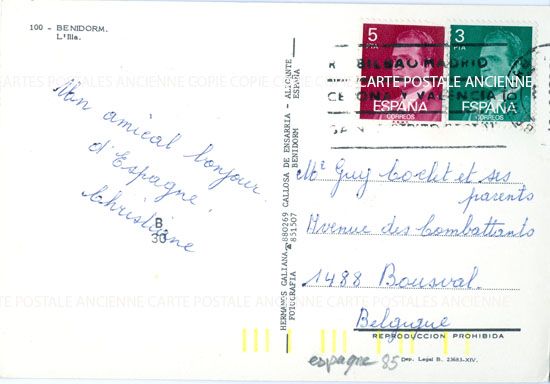 100 - BENIDORM.
L'Illa.
5
PTA
ESPAÑA
CORREOS
3
PTA
ESPAÑA
CORREOS
BILBAO MADRID
Y VALENCIA
COPIE CARTE POSTALE ANCIENNE
Un amical bonjour
d'Espagne
Christiane
B.
30
HERMANOS GALIANA 880269 CALLOSA DE ENSARRIA - ALICANTE
FOTOGRAFIA 851507 BENIDORM ESPAÑA
Mr Guy Coclet et ses
parents
Avenue des Combattants
1488 Bousval.
Belgique
CARTE POSTALE ANCIENNE CARTE POSTALE ANCIENNE CARTE POSTALE ANCIENNE
REPRODUCCION PROHIBIDA
espagne 85
Dep. Legal B. 23683-XIV.